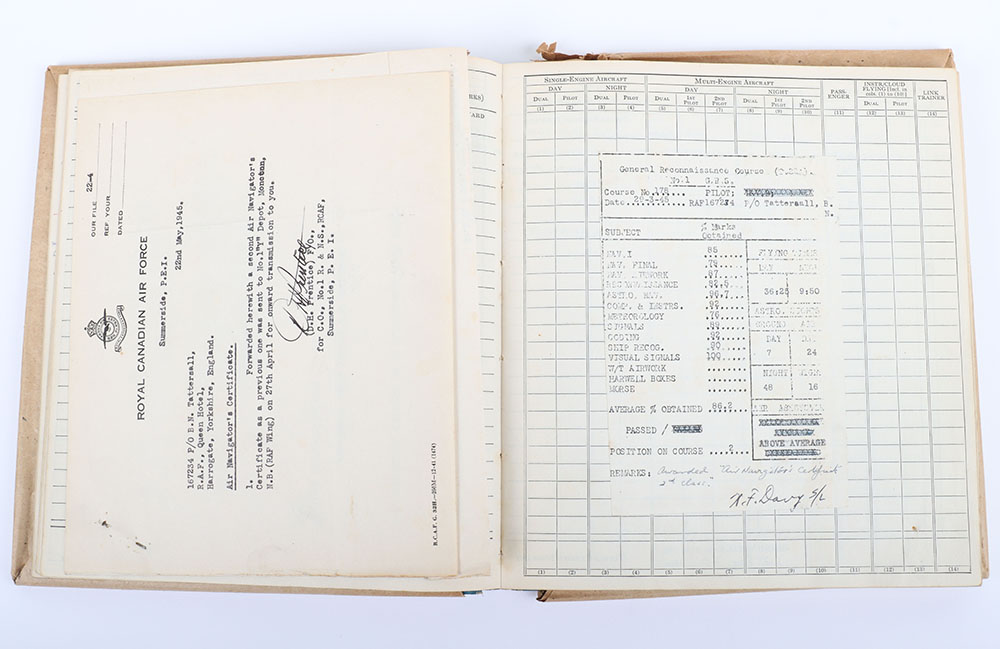 OUR FILE 22-4
REF YOUR
DATED
ROYAL CANADIAN AIR FORCE
Summerside, P.E.I.
22nd May, 1945.
167234 P/O B.N. Tattersall,
R.A.F., Queen Hotel,
Harrogate, Yorkshire, England.
Air Navigator's Certificate.
1. Forwarded herewith a second Air Navigator's
Certificate as a previous one was sent to No.1"Y" Depot, Moncton,
N.B.(RAF Wing) on 27th April for onward transmission to you.
(D.H. Prentice) F/O.,
for C.O., No.1 R. & N.S., RCAF,
Summerside, P. E. I.
SINGLE-ENGINE AIRCRAFT MULTI-ENGINE AIRCRAFT PASS-ENGER INSTR/CLOUD FLYING [Incl. in cols. (1) to (10)] LINK TRAINER
DAY NIGHT DAY NIGHT
DUAL PILOT DUAL PILOT DUAL 1ST PILOT 2ND PILOT DUAL 1ST PILOT 2ND PILOT DUAL PILOT
(1) (2) (3) (4) (5) (6) (7) (8) (9) (10) (11) (12) (13) (14)
General Reconnaissance Course
No.1 G.R.S.
Course No. 178 PILOT:
Date. 20-3-45 RAF167234 P/O Tattersall, B.
N.
SUBJECT % Marks Obtained
NAV.I 85
NAV. FINAL
RECONNAISSANCE
ASTRO. NAV.
COMP. & INSTRS.
METEOROLOGY 76
SIGNALS
CODING
SHIP RECOG.
VISUAL SIGNALS 100
W/T AIRWORK
HARWELL BOXES
MORSE
AVERAGE % OBTAINED .86.2...
PASSED /
POSITION ON COURSE ....2.
FLYING TIMES
DAY
36:25 9:50
ASTRO. SHOTS
GROUND AIR
DAY DAY
7 24
NIGHT NIGHT
48 16
AIR ASSESSMENT
ABOVE AVERAGE
REMARKS: Awarded "Air Navigator's Certificate
2nd Class."
N.F. Davy S/L
(1) (2) (3) (4) (5) (6) (7) (8) (9) (10) (11) (12) (13) (14)